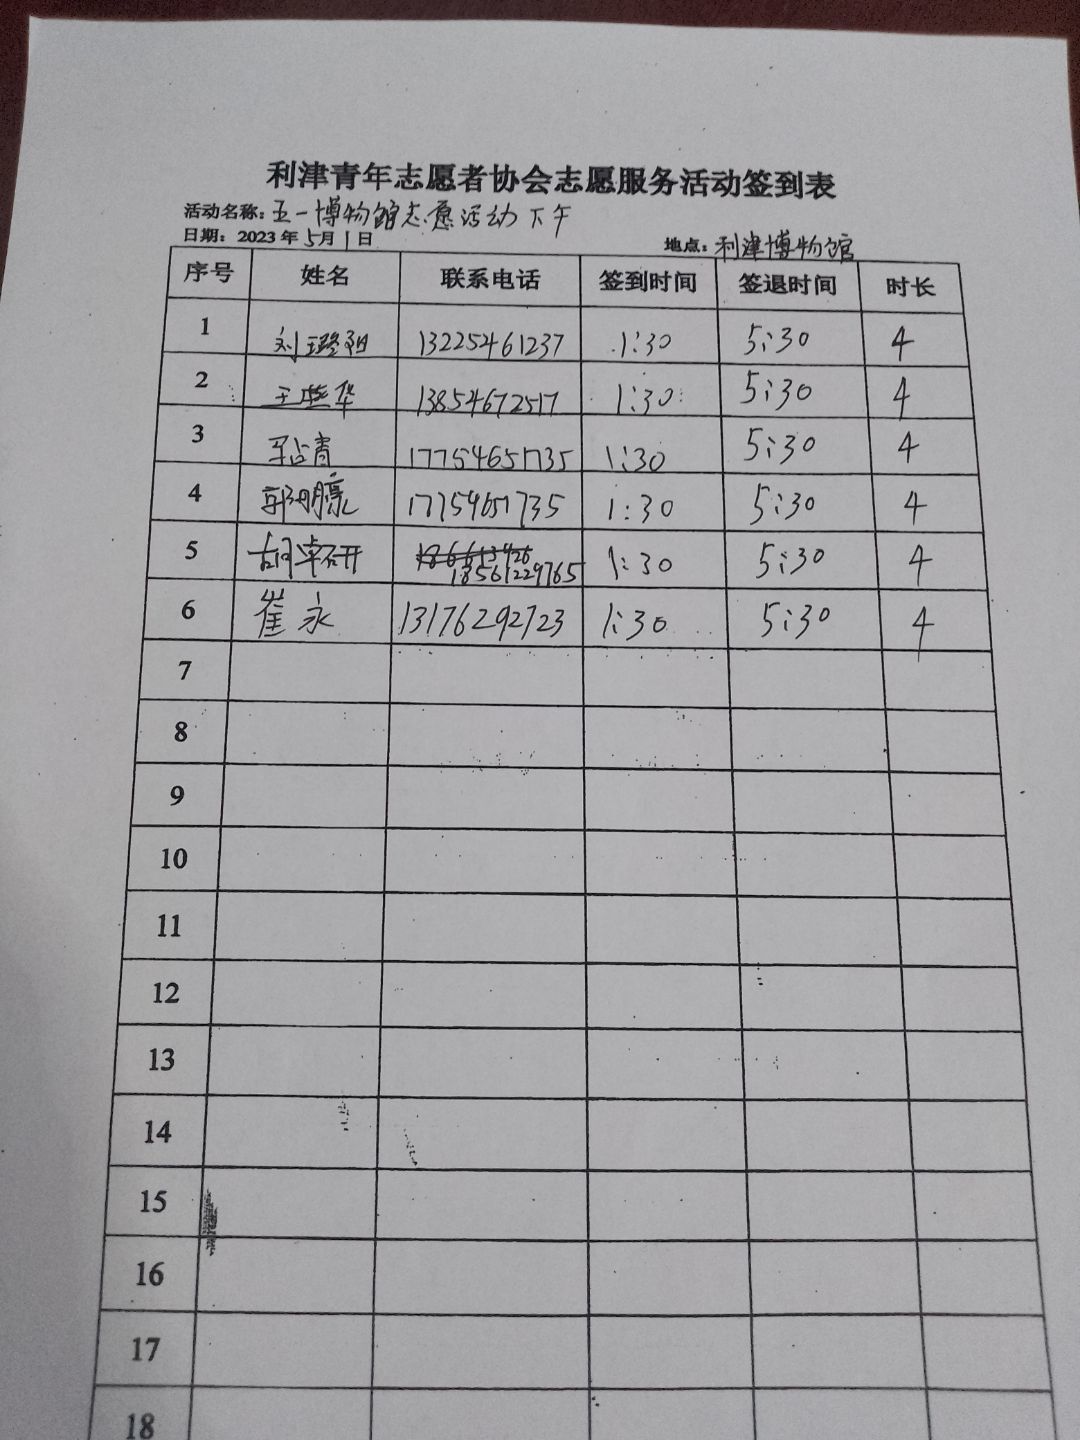 利津青年志愿者协会志愿服务活动签到表
活动名称：五一博物馆志愿活动下午
日期：2023年5月1日 地点：利津博物馆
序号 姓名 联系电话 签到时间 签退时间 时长
1 刘璐阳 13225461237 1:30 5:30 4
2 王 华 13854672517 1:30 5:30 4
3 青 17754651735 1:30 5:30 4
4 郭 17754651735 1:30 5:30 4
5 胡卓研 18561229765 1:30 5:30 4
6 崔永 13176292723 1:30 5:30 4
7
8
9
10
11
12
13
14
15
16
17
18